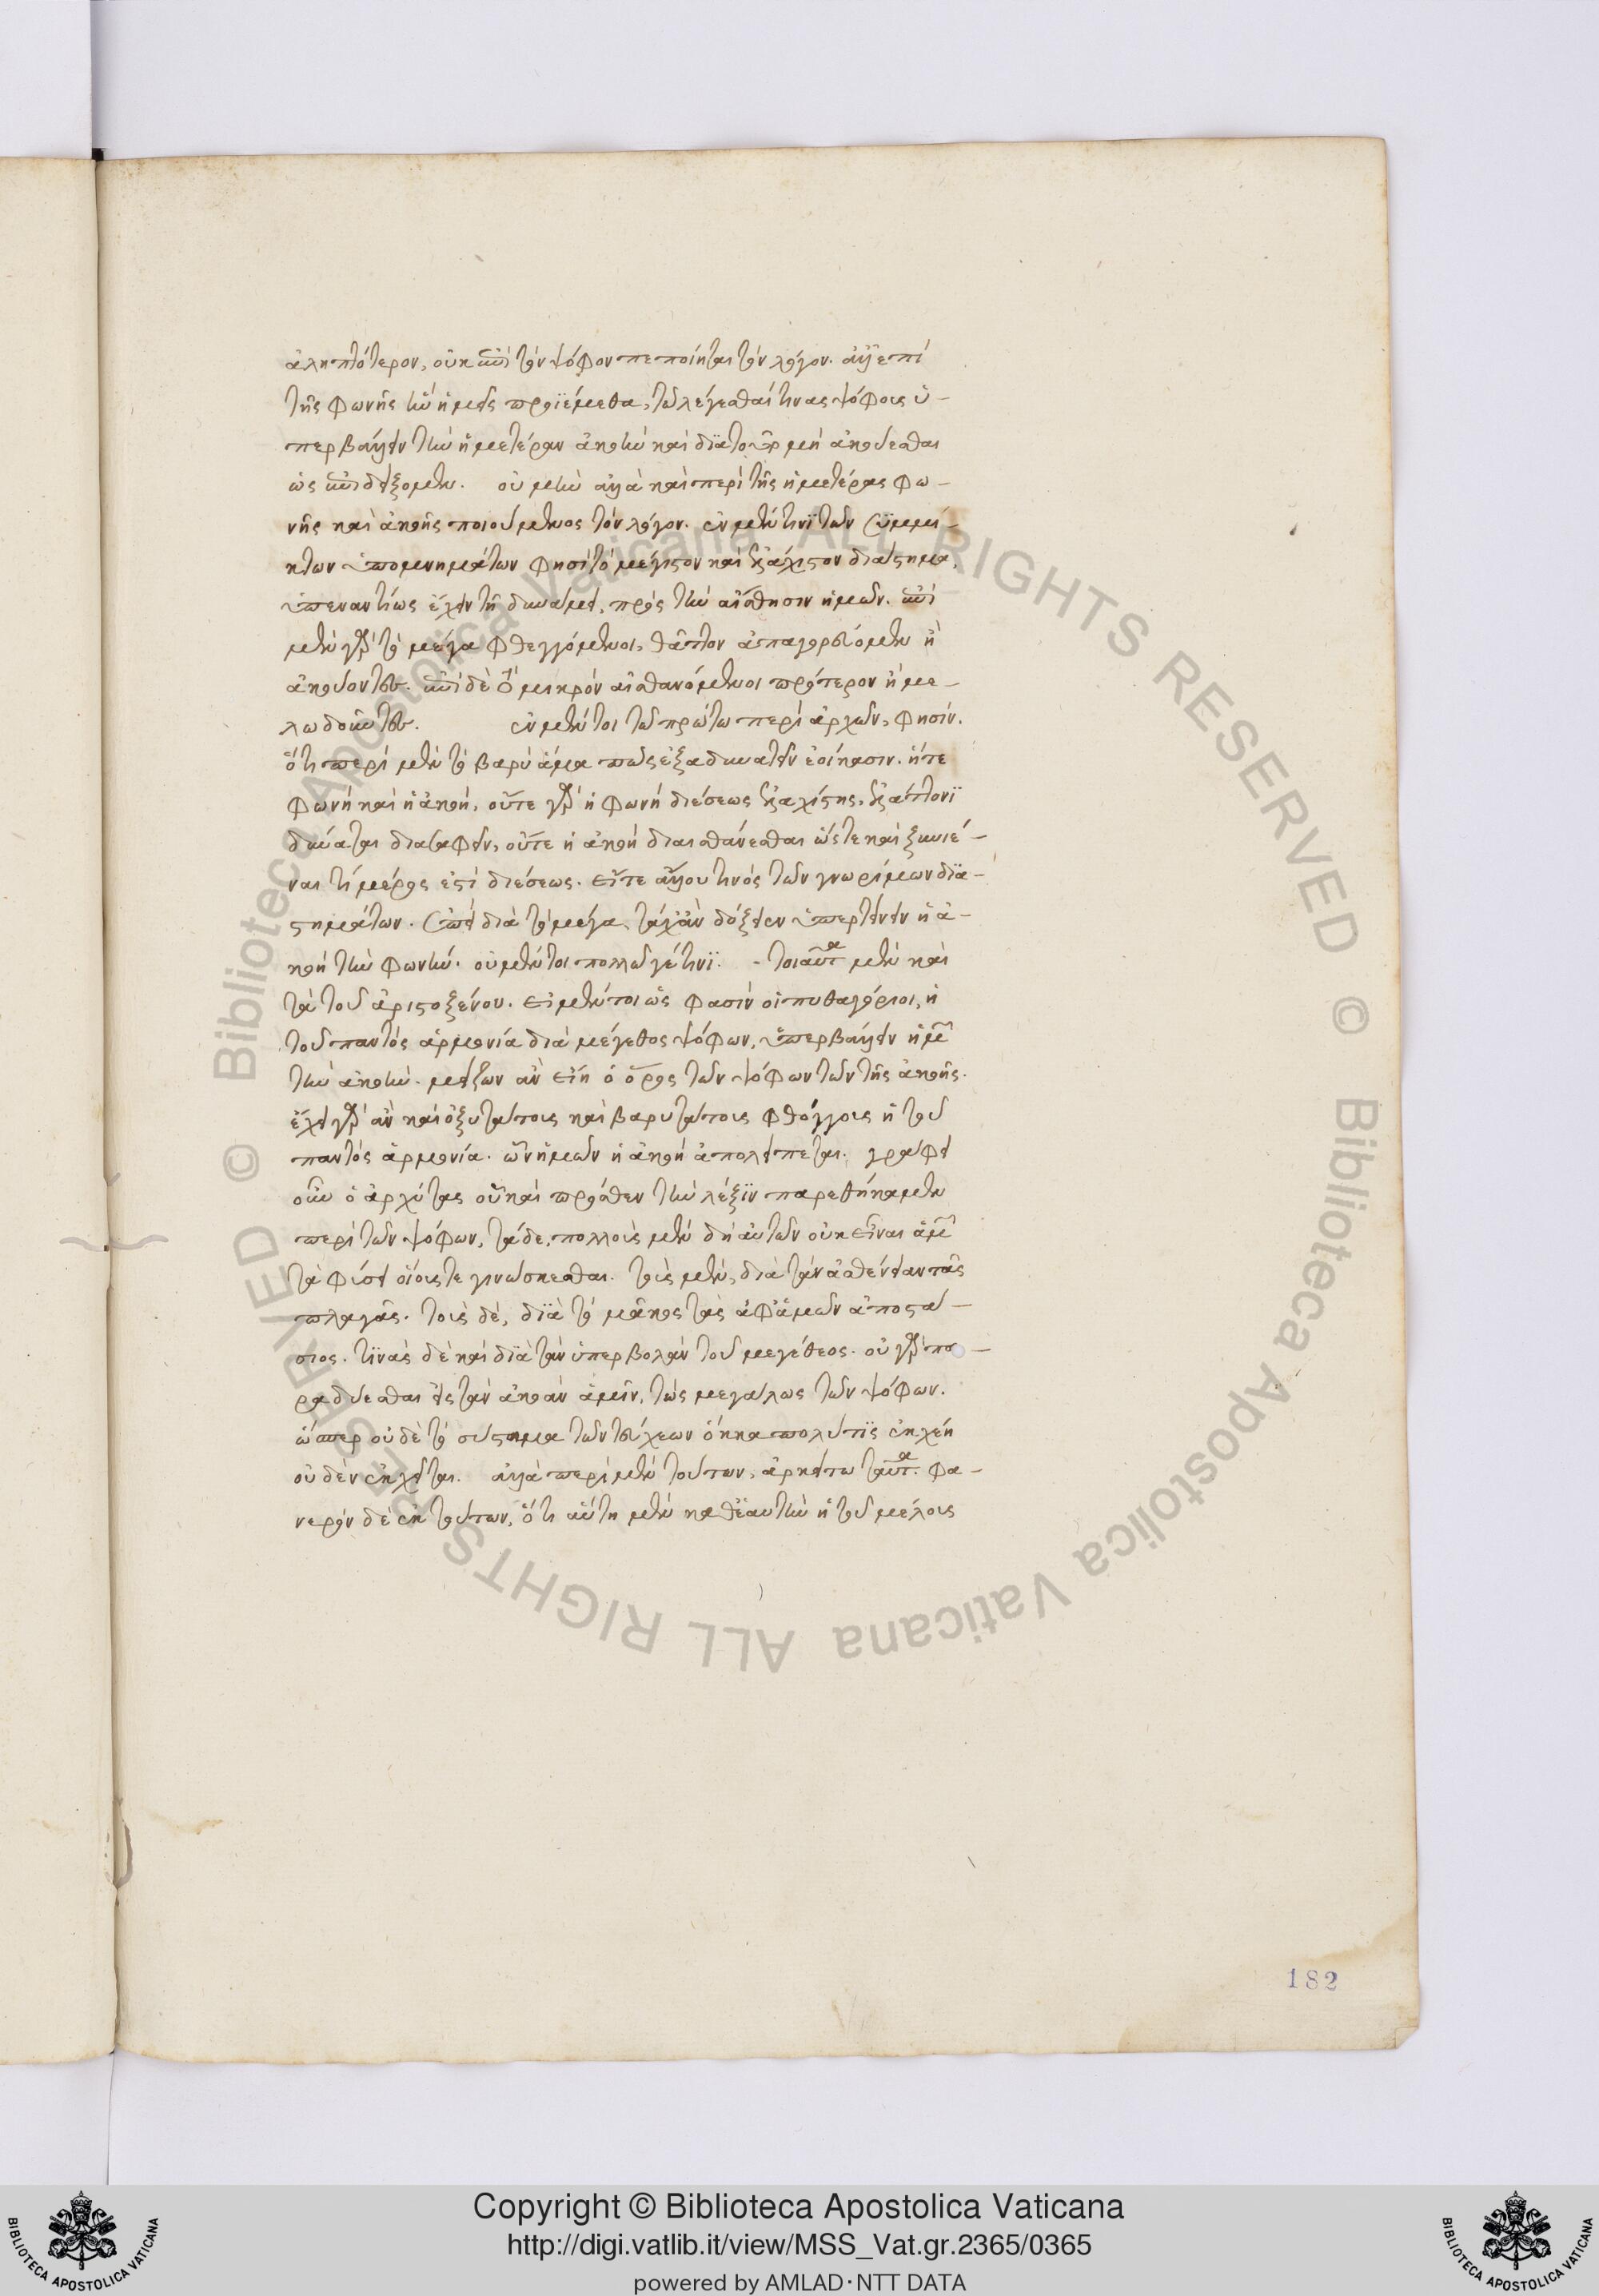 ἀληπτότερον, οὐκ ἐπὶ τὸν ψόφον πεποίηται τὸν λόγον. ἀλλ' ἐπὶ
τῆς φωνῆς ἣν ἡμεῖς προϊέμεθα, τῶ λέγεσθαί τινας ψόφοις ὑ-
περβάλλειν τὴν ἡμετέραν ἀκοὴν καὶ διὰ τοῦτο μὴ ἀκούεσθαι
ὡς ἐπιδείξομεν. οὐ μὴν ἀλλὰ καὶ περὶ τῆς ἡμετέρας φω-
νῆς καὶ ἀκοῆς ποιούμενος τὸν λόγον. ἐν μέν τινι τῶν συμμί-
κτων ὑπομνημάτων φησὶ τὸ μέγιστον καὶ ἐλάχιστον διάστημα,
ὑπεναντίως ἔχειν τῆ δυνάμει, πρὸς τὴν αἴσθησιν ἡμῶν. ἐπὶ
μὲν γὰρ τὸ μέγα φθεγγόμενοι, θᾶττον ἀπαγορεύομεν ἢ
ἀκούοντες. ἐπὶ δὲ τὸ μικρὸν αἰσθανόμενοι πρότερον ἢ με-
λωδοῦντες. ἐν μέντοι τῶ πρώτω περὶ ἀρχῶν, φησίν.
ὅτι περὶ μὲν τὸ βαρὺ ἅμα πως ἐξαδυνατεῖν ἐοίκασιν. ἥτε
φωνὴ καὶ ἡ ἀκοή, οὔτε γὰρ ἡ φωνὴ διέσεως ἐλαχίστης, ἔλαττον
δύναται διασαφεῖν, οὔτε ἡ ἀκοὴ διαισθάνεσθαι ὥστε καὶ ξυνιέ-
ναι τί μέρος ἐστὶ διέσεως. εἴτε ἄλλου τινὸς τῶν γνωρίμων δια-
στημάτων. ἐπεὶ διὰ τὸ μέγα, τάχ' ἂν δόξειεν ὑπερτείνειν ἡ ἀ-
κοὴ τὴν φωνήν. οὐ μέντοι πολλῶ γέ τινι. τοιαῦτα μὲν καὶ
τὰ τοῦ ἀριστοξένου. εἰ μέντοι ὥς φασιν οἱ πυθαγόρειοι, ἡ
τοῦ παντὸς ἁρμονία διὰ μέγεθος ψόφων, ὑπερβάλλειν ἡμῖν
τὴν ἀκοήν. μείζων ἂν εἴη ὁ ὅρος τῶν ψόφων τῶν τῆς ἀκοῆς.
ἔχει γὰρ ἂν καὶ ὀξυτάτοις καὶ βαρυτάτοις φθόγγοις ἡ τοῦ
παντὸς ἁρμονία. ὧν ἡμῶν ἡ ἀκοὴ ἀπολείπεται. γράφει
οὖν ὁ ἀρχύτας οὗ καὶ πρόσθεν τὴν λέξιν παρεθήκαμεν
περὶ τῶν ψόφων, τάδε. πολλοὺς μὲν δὴ αὐτῶν οὐκ εἶναι ἁμῶν
τᾶ φύσει οἵοις τε γινώσκεσθαι. τοὺς μέν, διὰ τὰν ἀσθένειαν τᾶς
πλαγᾶς. τοὺς δέ, διὰ τὸ μᾶκος τᾶς ἀφ' ἁμῶν ἀποστά-
σιος. τινὰς δὲ καὶ διὰ τὰν ὑπερβολὰν τοῦ μεγέθεος. οὐ γὰρ πα-
ραδύεσθαι εἰς τὰν ἀκοὰν ἁμῖν, τὼς μεγάλως τῶν ψόφων.
ὥσπερ οὐδὲ τὸ σύστημα τῶν τευχέων ὅκκα πολύ τις ἐκχέη
οὐδὲν ἐκχεῖται. ἀλλὰ περὶ μὲν τούτων, ἀρκείτω ταῦτα. φα-
νερὸν δὲ ἐκ τούτων, ὅτι αὕτη μὲν καθ' ἑαυτὴν ἡ τοῦ μέλους
182
Copyright © Biblioteca Apostolica Vaticana
http://digi.vatlib.it/view/MSS_Vat.gr.2365/0365
powered by AMLAD·NTT DATA
BIBLIOTECA APOSTOLICA VATICANA
BIBLIOTECA APOSTOLICA VATICANA
© Biblioteca Apostolica Vaticana ALL RIGHTS RESERVED © Biblioteca Apostolica Vaticana ALL RIGHTS RESERVED